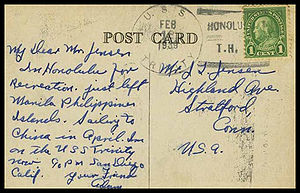 U.S.S.
FEB
1939
HONOLULU
T.H.
POST CARD
1 CENT 1
My Dear Mr Jensen
In Honolulu for
Recreation. just left
Manila Philippines
Islands. Sailing to
China in April. Im
on the U S S Trinity
now. 90 PM San Diego
Calif. Your Friend
Mr J. I. Jensen
Highland Ave
Stratford
Conn.
U.S.A.